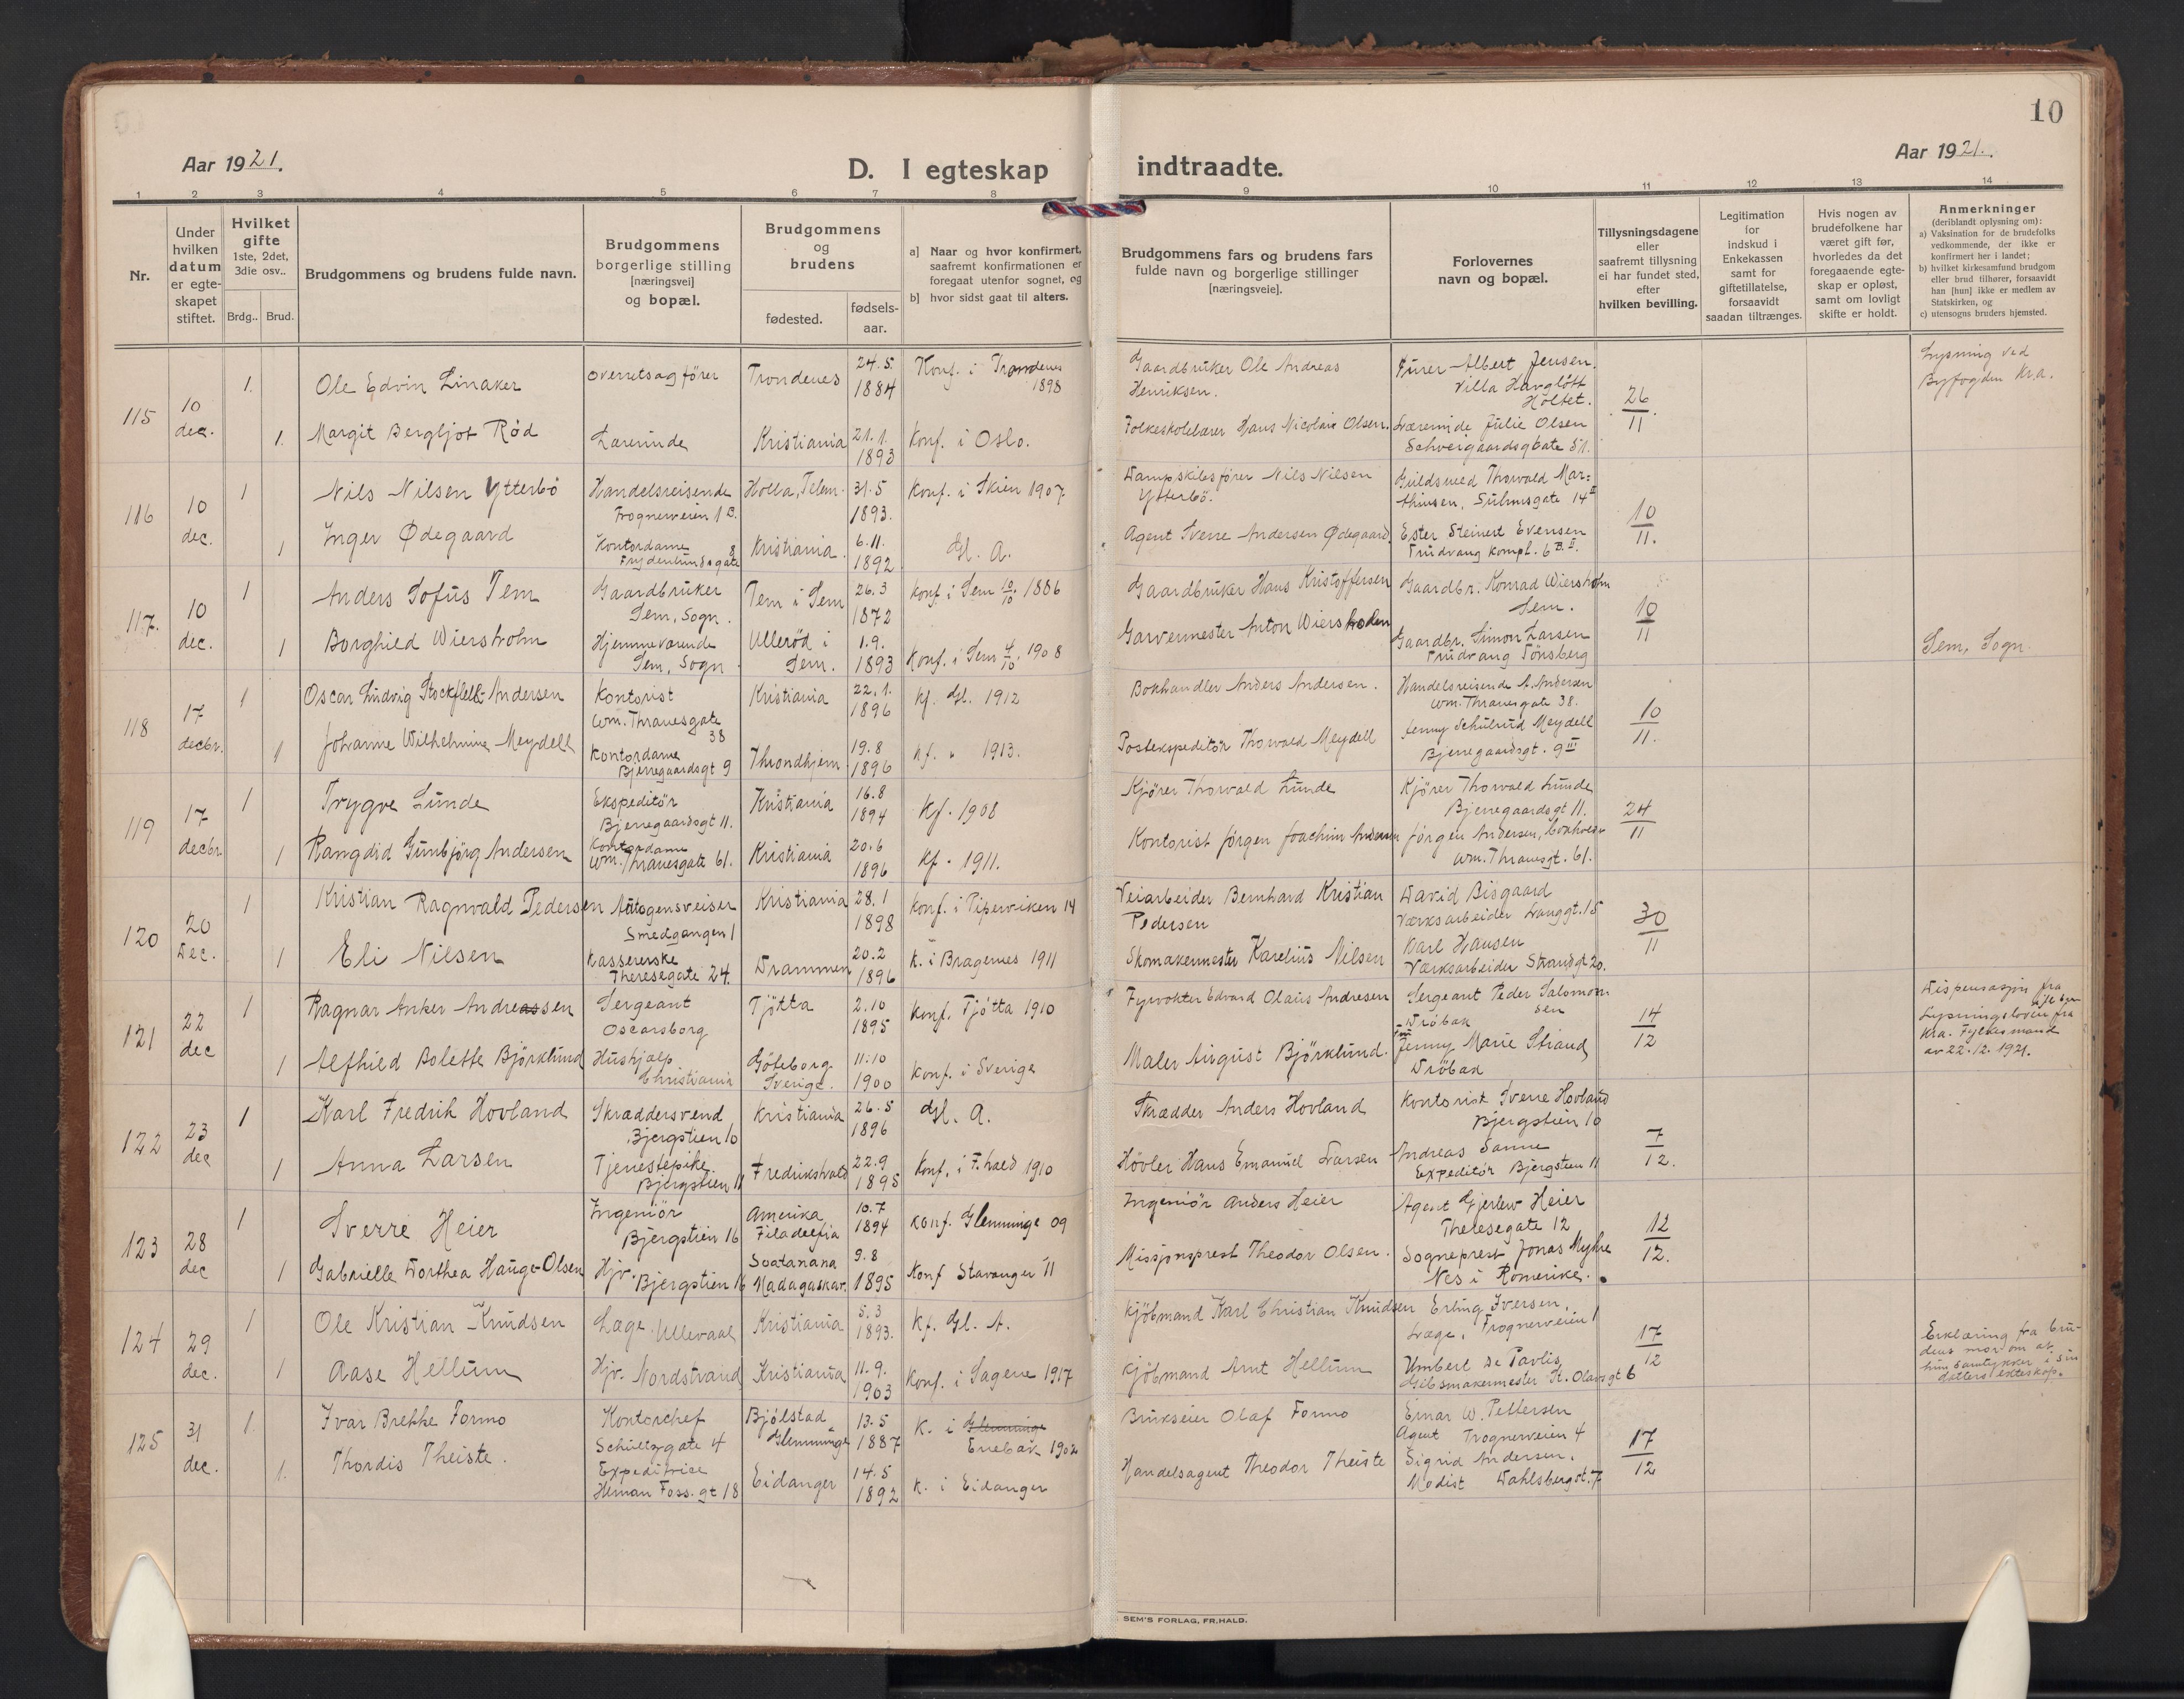 10
Aar 1921.
D. I egteskap
indtraadte.
Aar 1921.
1 2 3 4 5 6 7 8 9 10 11 12 13 14
Nr.
Under
hvilken
datum
er egte-
skapet
stiftet.
Hvilket
gifte
1ste, 2det,
3die osv..
Brdg.. Brud.
Brudgommens og brudens fulde navn.
Brudgommens
borgerlige stilling
[næringsvei]
og bopæl.
Brudgommens
og
brudens
fødested.
fødsels-
aar.
a] Naar og hvor konfirmert,
saafremt konfirmationen er
foregaat utenfor sognet, og
b] hvor sidst gaat til alters.
Brudgommens fars og brudens fars
fulde navn og borgerlige stillinger
[næringsveie].
Forlovernes
navn og bopæl.
Tillysningsdagene
eller
saafremt tillysning
ei har fundet sted,
efter
hvilken bevilling.
Legitimation
for
indskud i
Enkekassen
samt for
giftetillatelse,
forsaavidt
saadan tiltrænges.
Hvis nogen av
brudefolkene har
været gift før,
hvorledes da det
foregaaende egte-
skap er opløst,
samt om lovligt
skifte er holdt.
Anmerkninger
(deriblandt oplysning om):
a) Vaksination for de brudefolks
vedkommende, der ikke er
konfirmert her i landet;
b) hvilket kirkesamfund brudgom
eller brud tilhører, forsaavidt
han [hun] ikke er medlem av
Statskirken, og
c) utensogns bruders hjemsted.
115
10
dec.
1.
Ole Edvin Linaker
Overretsagfører
Trondenes
24.5.
1884
Konf. i Trondenes
1898
Gaardbruker Ole Andreas
Henriksen.
Furer Albert Jensen.
Villa Havglött
Holtet.
26
11.
Lysning ved
Byfogden Kra.
1.
Margit Bergljot Rød
Lærerinde
Kristiania
21.1.
1893
Konf. i Oslo.
Folkeskolelærer Hans Nicolai Olsen.
Lærerinde Julie Olsen
Schweigaardsgate 51.
116
10
dec.
1
Nils Nilsen Ytterbö
Handelsreisende
Frognerveien 1 B.
Holla, Telem.
31.5
1893.
Konf. i Skien 1907
Dampskibsfører Nils Nilsen
Ytterbö.
Guldsmed Thorvald Mar=
thinsen, Suhmsgate 14 II
10
11.
1
Inger Ødegaard
Kontordame
Frydenlundsgate 8
Kristiania.
6.11.
1892
Gl. A.
Agent Sverre Andersen Ødegaard.
Ester Steinert Evensen
Trudvang kompl. 6 B. II.
117.
10
dec.
1
Anders Sofus Tem
Gaardbruker
Sem, Sogn.
Tem i Sem
26.3
1872
Konf. i Sem 10/10. 1886
Gaardbruker Hans Kristoffersen
Gaardbr. Konrad Wiersholm
Sem.
10
11
1
Borghild Wiersholm
Hjemmeværende
Sem, Sogn.
Ullerød i
Sem.
1.9.
1893
Konf. i Sem 4/10. 1908
Garvermester Anton Wiersholm
Gaardbr. Simon Larsen
Trudvang Tønsberg
Sem, Sogn.
118
17
decbr.
1
Oscar Ludvig Stockfleth-Andersen
Kontorist
Wm. Thranesgate
38
Kristiania
22.1.
1896
Kf. Gl. 1912
Bokhandler Anders Andersen.
Handelsreisende A. Andersen
Wm. Thranesgate 38.
10
11.
1
Johanne Wilhelmine Meydell
Kontordame
Bjerregaardsgt 9
Throndhjem
19.8
1896
Kf. " 1913.
Postekspeditör Thorvald Meydell
Jenny Schulrud Meydell
Bjerregaardsgt. 9 III
119
17
decbr.
1
Trygve Lunde
Ekspeditör
Bjerregaardsgt 11.
Kristiania
16.8
1894
Kf. 1908
Kjörer Thorvald Lunde
Kjörer Thorvald Lunde
Bjerregaardsgt 11.
24
11
1
Rangdid Gunbjörg Andersen
Kontordame
Wm. Thranesgate 61.
Kristiania
20.6
1896
Kf. 1911.
Kontorist Jörgen Joachim Andersen
Jörgen Andersen, bokholder
Wm. Thranesgt. 61.
120
20
Dec.
1
Kristian Ragnvald Pedersen
Autogensveiser
Smedgangen 1
Kristiania
28.1
1898
Konf. i Piperviken 14
Veiarbeider Bernhard Kristian
Pedersen
David Bisgaard
Værksarbeider Langgt. 15
30
11
1
Eli Nilsen
Kassererske
Theresegate 24.
Drammen
20.2
1896
K. i Bragernes 1911
Skomakermester Karelius Nilsen
Karl Hansen
Værksarbeider Strandgt 20.
121
22
dec
1
Ragnar Anker Andreassen
Sergeant
Oscarsborg
Tjøtta
2.10
1895
Konf. Tjøtta 1910
Fyrvokter Edvard Olaus Andresen
Sergeant Peder Salomon
sen
Drøbak
14
12
Dispensasjon fra
Lysningsloven fra
Kra. Fylkesmand
av 22.12.1921.
1
Alfhild Bolette Björklund
Hushjælp
Christiania
Göteborg
Sverige.
11.10
1900
Konf. i Sverige
Maler August Björklund.
Jenny Marie Strand
Drøbak
122
23
dec
1
Karl Fredrik Hovland
Skræddersvend
Bjergstien 10
Kristiania
26.5
1896
Gl. A.
Skrædder Anders Hovland
Kontorist Sverre Hovland
Bjergstien 10
7
12.
1
Anna Larsen
Tjenestepike.
Bjergstien 11
Fredrikshald
22.9
1895
Konf. i F.hald 1910
Hövler Hans Emanuel Larsen
Andreas Sanne
Expeditör Bjergstien 11
123
28
dec
1
Sverre Heier
Ingeniör
Bjergstien 16
Amerika
Filadelfia
10.7
1894
Konf. Glemminge 09
Ingeniör Anders Heier
Agent Gjerlew Heier
Theresegate 12
12
12.
1
Gabrielle Dorthea Hauge-Olsen
Hjv.
Bjergstien 16
Soatanana
Madagaskar.
9.8
1895
Konf Stavanger 11
Missjonsprest Theodor Olsen.
Sogneprest Jonas Myhre
Nes i Romerike.
124
29
dec.
1
Ole Kristian Knudsen
Læge. Ullevaal
Kristiania
5.3
1893.
Kf. Gl. A.
Kjöbmand Karl Christian Knudsen
Erling Iversen,
Læge, Frognerveien 1
17
12
Erklæring fra bru-
dens mor om at
hun samtykker i sin
datters ekteskap.
1
Aase Hellum
Hjv. Nordstrand
Kristiania
11.9.
1903
Konf. i Sagene 1917
Kjöbmand Arnt Hellum
Umbert De Paulis
Gibsmakermester St. Olavsgt 6
125
31
dec.
1.
Ivar Brekke Formo
Kontorchef
Schultzgate 4
Bjölstad
Glemminge
13.5
1887
K. i Glemminge
Enebak 1902
Brukseier Olaf Formo
Einar W. Pettersen
Agent Frognerveien 4
17
12
1.
Thordis Theiste.
Expeditrice
Herman Foss. gt 18
Eidanger
14.5
1892
K. i Eidanger
Handelsagent Theodor Theiste
Sigrid Andersen.
Modist Dahlsbergst. 7
SEM'S FORLAG, FR.HALD.